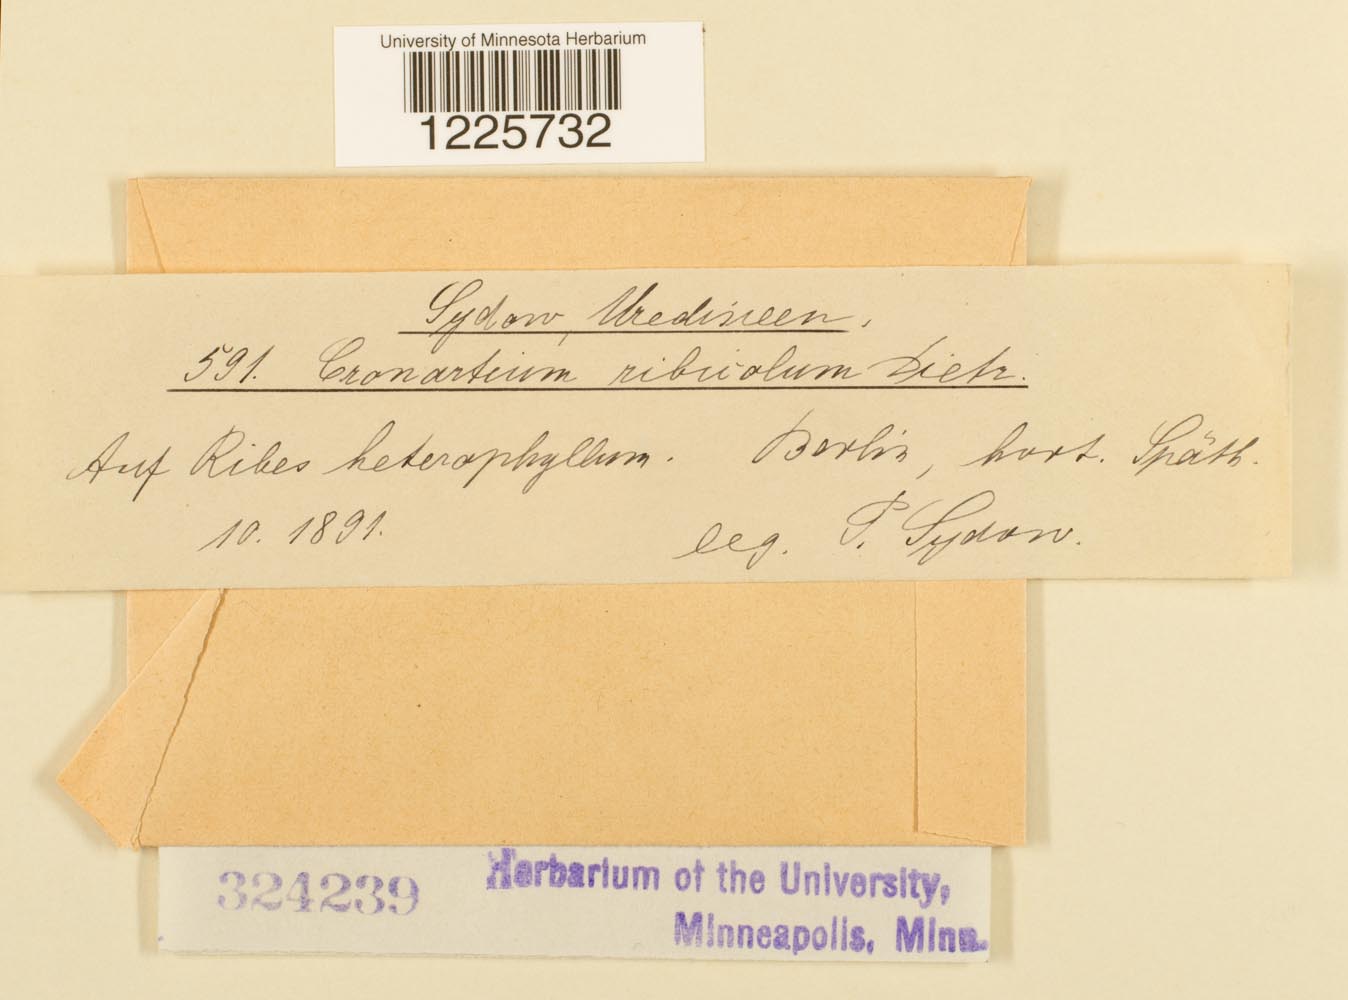 University of Minnesota Herbarium
1225732
Sydow, Uredineen.
591. Cronartium ribicolum Dietr.
Auf Ribes heterophyllum. Berlin, hort. Späth.
10. 1891. leg. P. Sydow.
324239 Herbarium of the University,
Minneapolis, Minn.